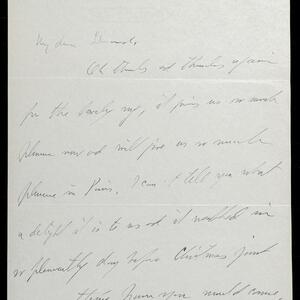 My dear
Oh thanks and thanks again
for the lovely rug, it gives us so much
pleasure now and will give us so much
pleasure in Paris. I can't tell you what
a delight it is to us and it resulted in
so pleasantly day before Christmas just
you would come